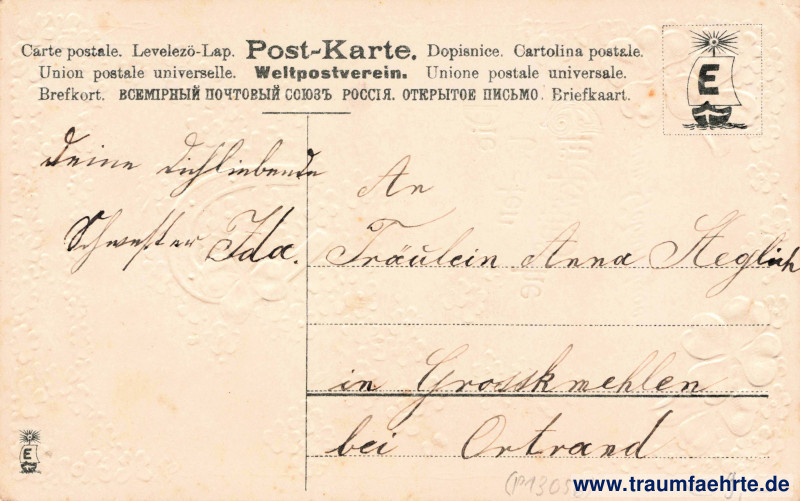 Carte postale. Levelezö-Lap. Post-Karte. Dopisnice. Cartolina postale.
Union postale universelle. Weltpostverein. Unione postale universale.
Brefkort. ВСЕМІРНЫЙ ПОЧТОВЫЙ СОЮЗЪ РОССІЯ. ОТКРЫТОЕ ПИСЬМО. Briefkaart.
E
Deine Dichliebende
Schwester Ida.
An
Fräulein Anna Steglich
in Grosskmehlen
bei Ortrand
E
www.traumfaehrte.de